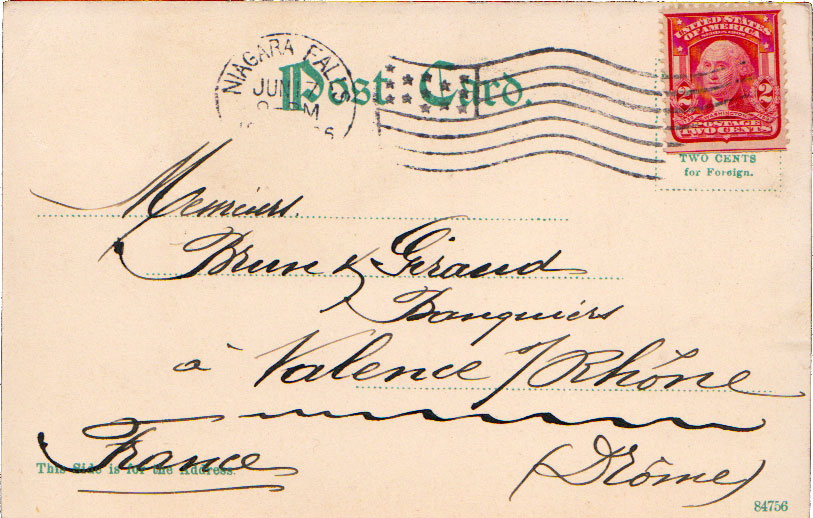 NIAGARA FALLS
JUN 17
Post Card.
UNITED STATES
OF AMERICA
2 2
WASHINGTON
POSTAGE
TWO CENTS
TWO CENTS
for Foreign.
Messieurs.
Brun & Giraud
Banquiers
à Valence s/Rhône
(Drôme)
France
This Side is for the Address.
84756